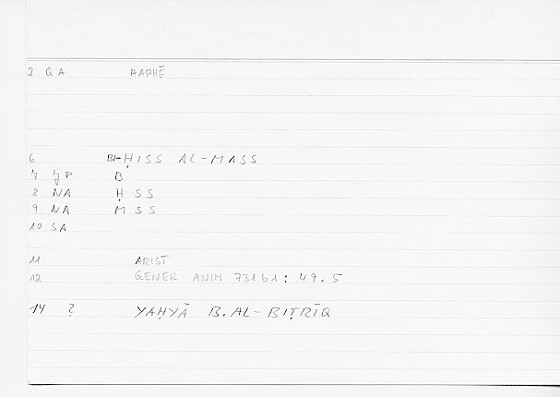 2 QA HAPHĒ
6 BI-ḤISS AL-MASS
7 JP B
8 NA Ḥ SS
9 NA M SS
10 SA
11 ARIST
12 GENER ANIM 731b1: 49.5
14 ? YAḤYĀ B. AL-BIṬRĪQ